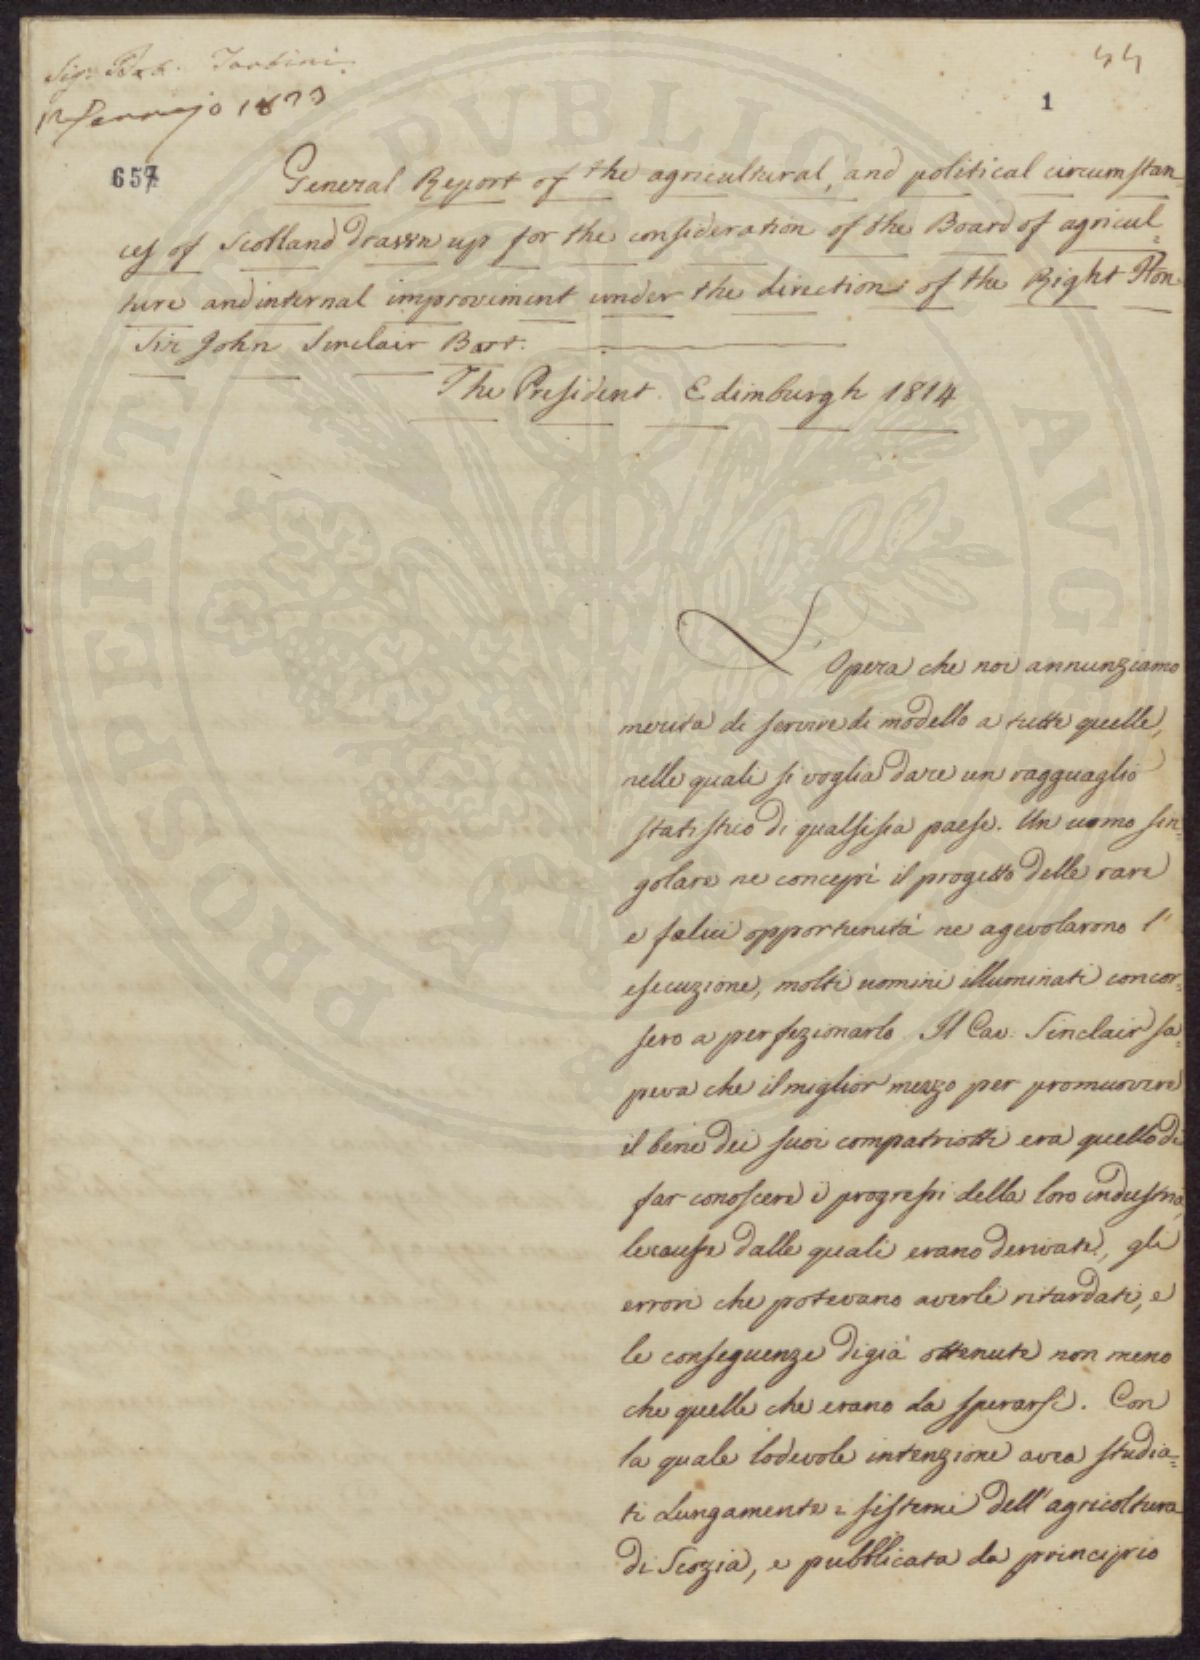 Sigr
44
1
Gennajo 1823
657
General Report of the agricultural, and political circumstan=
ces of Scotland drawn up for the consideration of the Board of agricul=
ture and internal improviment under the direction of the Right Hon
Sir John Sinclair Bart.
The President. Edimburgh 1814
L'Opera che noi annunziamo
merita di servire di modello a tutte quelle,
nelle quali si voglia dare un ragguaglio
statistico di qualsisia paese. Un uomo sin=
golare ne concepì il progetto delle rare
e felici opportunità ne agevolarono l'
esecuzione, molti uomini illuminati concor=
sero a perfezionarlo Il Cav. Sinclair sa=
peva che il miglior mezzo per promuovere
il bene dei suoi compatriotti era quello di
far conoscere i progressi della loro industria,
le cause dalle quali erano derivati, gli
errori che potevano averli ritardati, e
le conseguenze digià ottenute non meno
che quelle che erano da sperarsi. Con
la quale lodevole intenzione avea studia=
ti lungamente i sistemi dell'agricoltura
di Scozia, e pubblicata da principio
PROSPERITATI PVBLICAE AVG